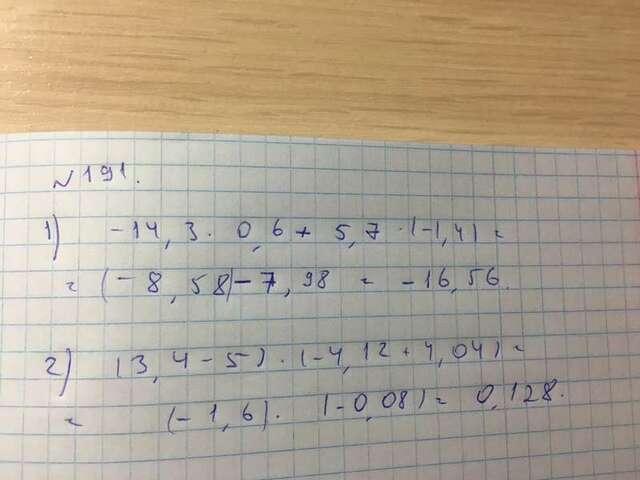 №191.
1) -14,3 · 0,6 + 5,7 · (-1,4) =
= (-8,58) - 7,98 = -16,56.
2) (3,4 - 5) · (-4,12 + 4,04) =
= (-1,6) · (-0,08) = 0,128.